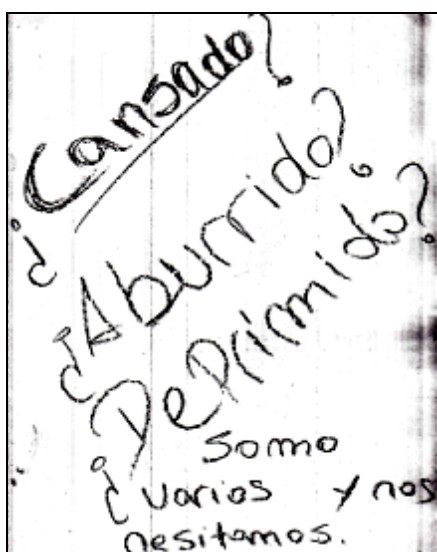 ¿Cansado?
¿Aburrido?
¿Deprimido?
Somo
varios y nos
nesitamos.